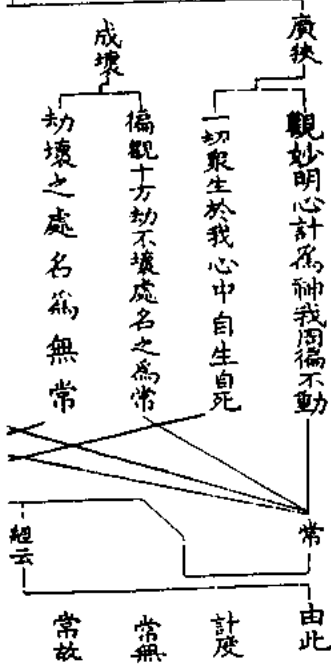 廣狹
觀妙明心計為神我周徧不動
一切眾生於我心中自生自死
成壞
徧觀十方劫不壞處名之為常
劫壞之處名為無常
常
由此
計度
常無
常故
經云